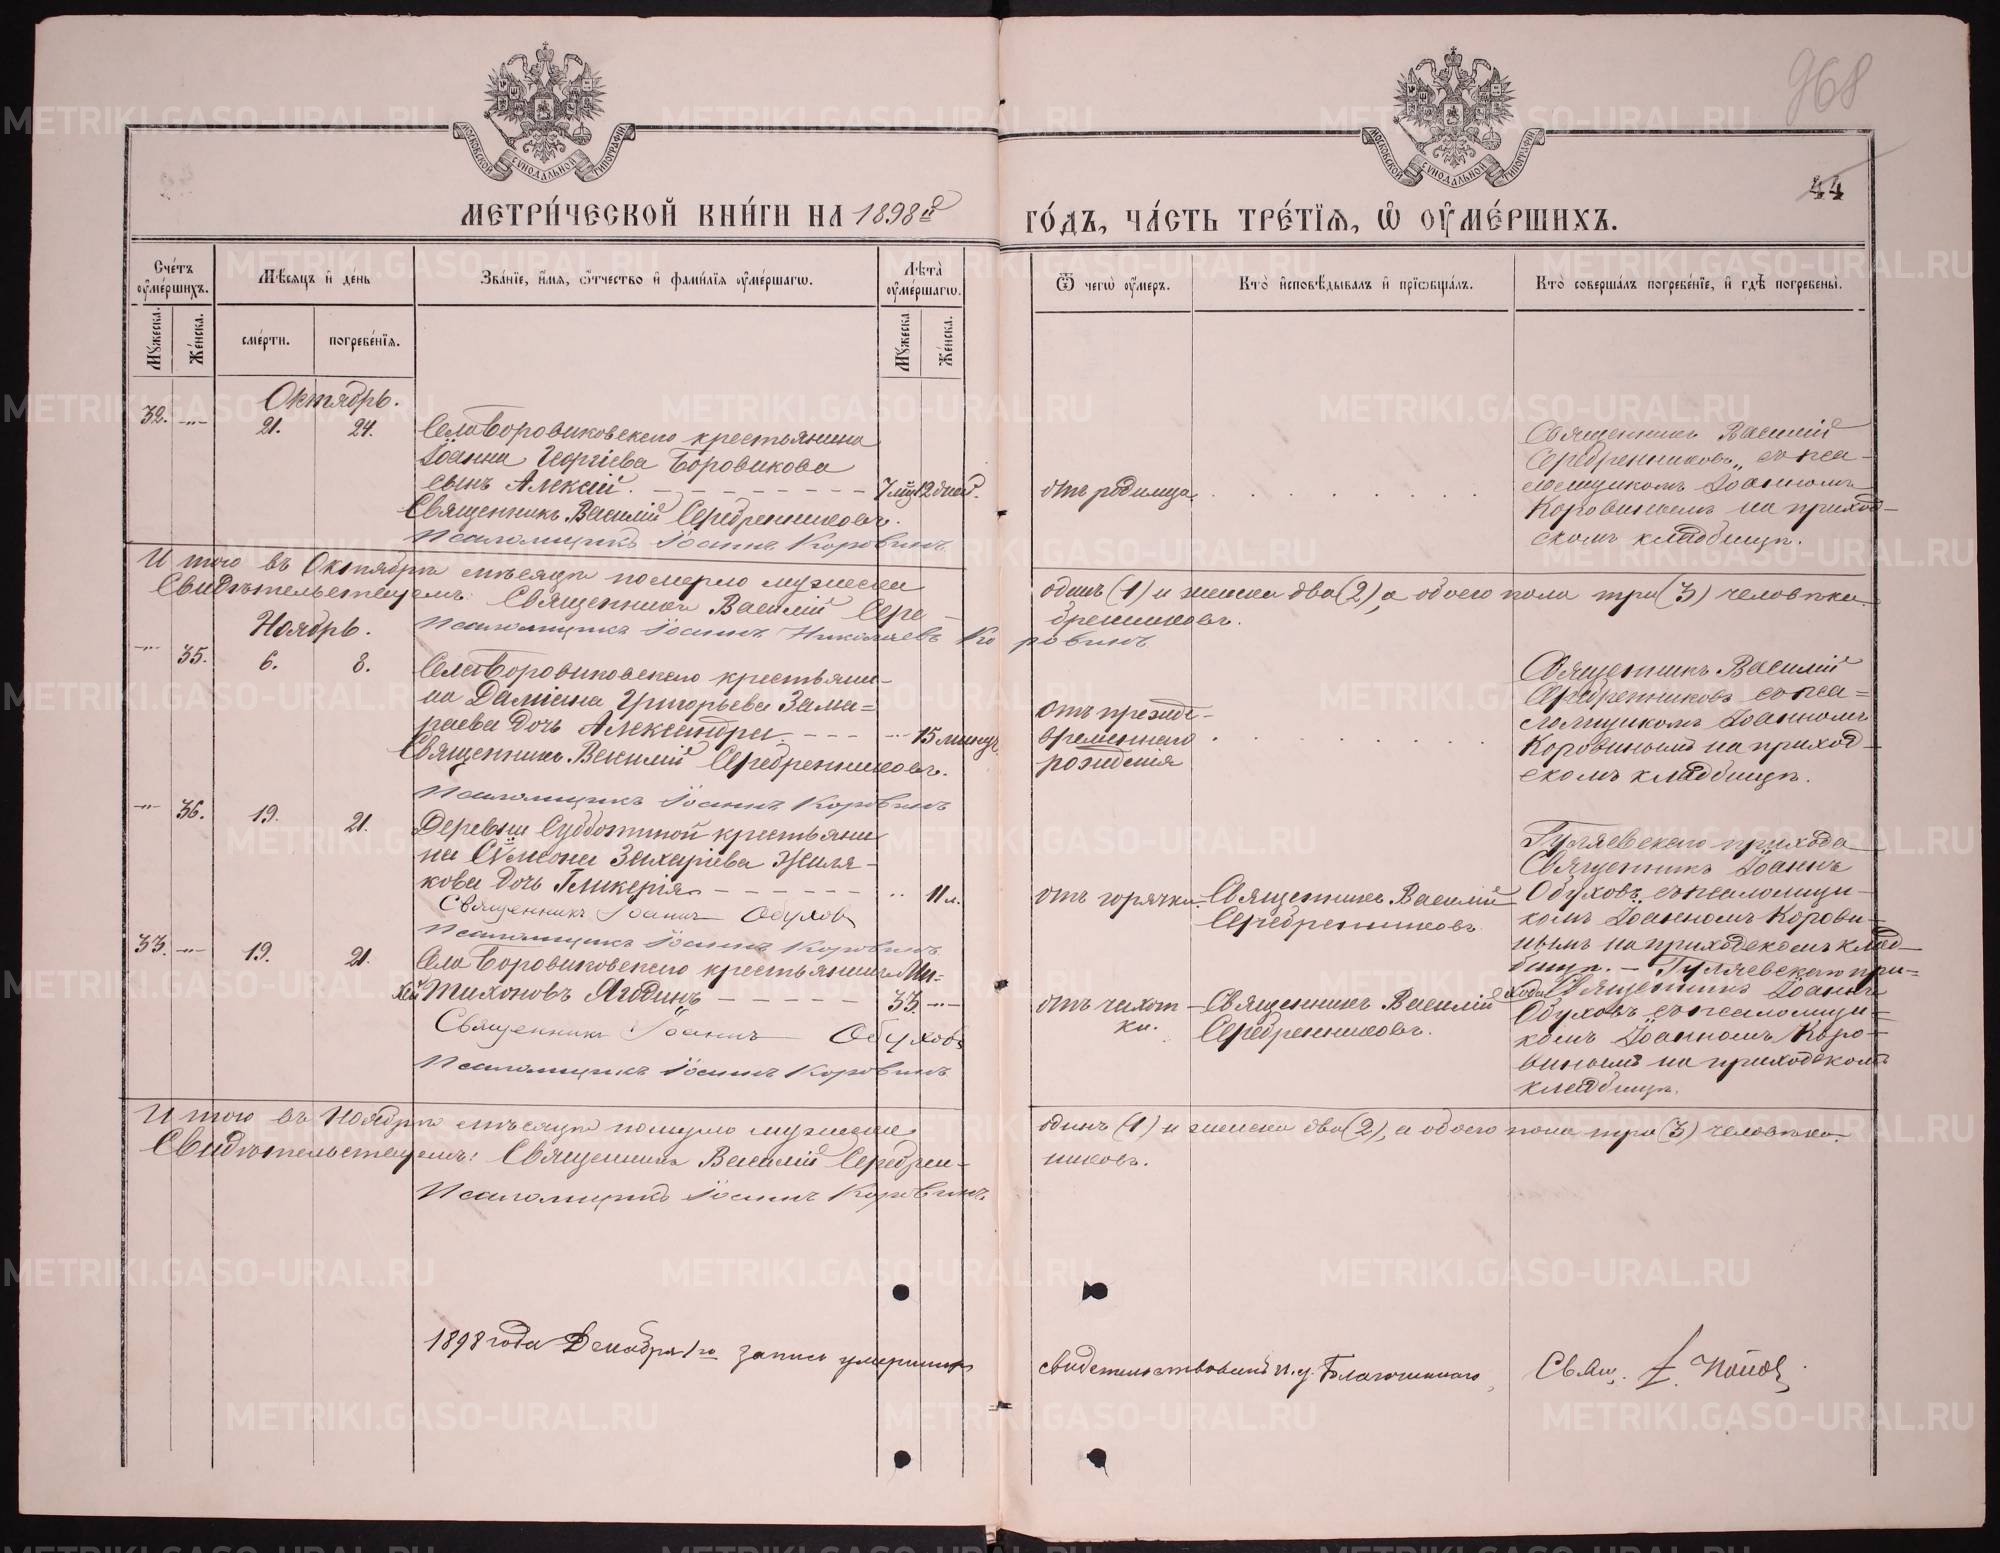 968
44
МОСКОВСКОЙ СѴНОДАЛЬНОЙ ТИПОГРАФІИ
МОСКОВСКОЙ СѴНОДАЛЬНОЙ ТИПОГРАФІИ
МЕТРИ́ЧЕСКОЙ КНИ́ГИ НА 1898й ГО́ДЪ, ЧА́СТЬ ТРЕ́ТЇѦ, Ѡ ОУ҆МЕ́РШИХЪ.
Сче́тъ оу҆ме́ршихъ.
Мꙋ́жеска.
Же́нска.
Мѣ́сяцъ и҆ де́нь
сме́рти.
погребе́нїѧ.
Зва́нїе, и҆́мѧ, ѻ҆́тчество и҆ фами́лїѧ оу҆ме́ршагѡ.
Лѣта̀ оу҆ме́ршагѡ.
Мꙋ́жеска
Же́нска.
Ѿ чегѡ̀ оу҆́меръ.
Кто̀ и҆сповѣ́дывалъ и҆ прїѡбща́лъ.
Кто̀ соверша́лъ погребе́нїе, и҆ гдѣ̀ погребены̀.
Октябрь.
32. -"- 21. 24.
Села Боровиковскаго крестьянина
Іоанна Георгіева Боровикова
сынъ Алексій. 7 мѣс. 12 дней.
Священникъ Василій Серебренниковъ.
Псаломщикъ Іоаннъ Коровинъ
отъ родимца
Священникъ Василій
Серебренниковъ съ пса-
ломщикомъ Іоанномъ
Коровинымъ на приход-
скомъ кладбищѣ.
Итого въ Октябрѣ мѣсяцѣ померло мужеска одинъ (1) и женска два (2), а обоего пола три (3) человѣка.
Свидѣтельствуемъ: Священникъ Василій Сере-бренниковъ.
Псаломщикъ Іоаннъ Николаевъ Коровинъ
Ноябрь.
-"- 35. 6. 8.
Села Боровиковскаго крестьяни-
на Даміана Григорьева Зама-
раева дочь Александра. -"- 15 минут.
Священникъ Василій Серебренниковъ.
Псаломщикъ Іоаннъ Коровинъ
отъ прежде-
временнаго
рожденія
Священникъ Василій
Серебренниковъ съ пса-
ломщикомъ Іоанномъ
Коровинымъ на приход-
скомъ кладбищѣ.
-"- 36. 19. 21.
Деревни Субботиной крестьяни
на Сѵмеона Захаріева Жиля-
кова дочь Гликерія 11 л.
Священникъ Іоаннъ Обуховъ
Псаломщикъ Іоаннъ Коровинъ
отъ горячки.
Священникъ Василій
Серебренниковъ
Гуляевскаго прихода
Священникъ Іоаннъ
Обуховъ съ псаломщи-
комъ Іоанномъ Корови-
нымъ на приходскомъ клад-
бищѣ.
33. -"- 19. 21.
Села Боровиковскаго крестьянинъ Ми-
хей Тихоновъ Ягодинъ 33. -"-
Священникъ Іоаннъ Обуховъ
Псаломщикъ Іоаннъ Коровинъ
отъ чахот-
ки.
Священникъ Василій
Серебренниковъ.
Гуляевскаго при-
хода Священникъ Іоаннъ
Обуховъ съ псаломщи-
комъ Іоанномъ Коро-
винымъ на приходскомъ
кладбищѣ.
Итого въ Ноябрѣ мѣсяцѣ померло мужеска одинъ (1) и женска два (2), а обоего пола три (3) человѣка.
Свидѣтельствуемъ: Священникъ Василій Серебрен-никовъ.
Псаломщикъ Іоаннъ Коровинъ
1898 года Декабря 1го запись умершихъ свидетельствовалъ и. д. Благочиннаго, Свящ. Попов
METRIKI.GASO-URAL.RU